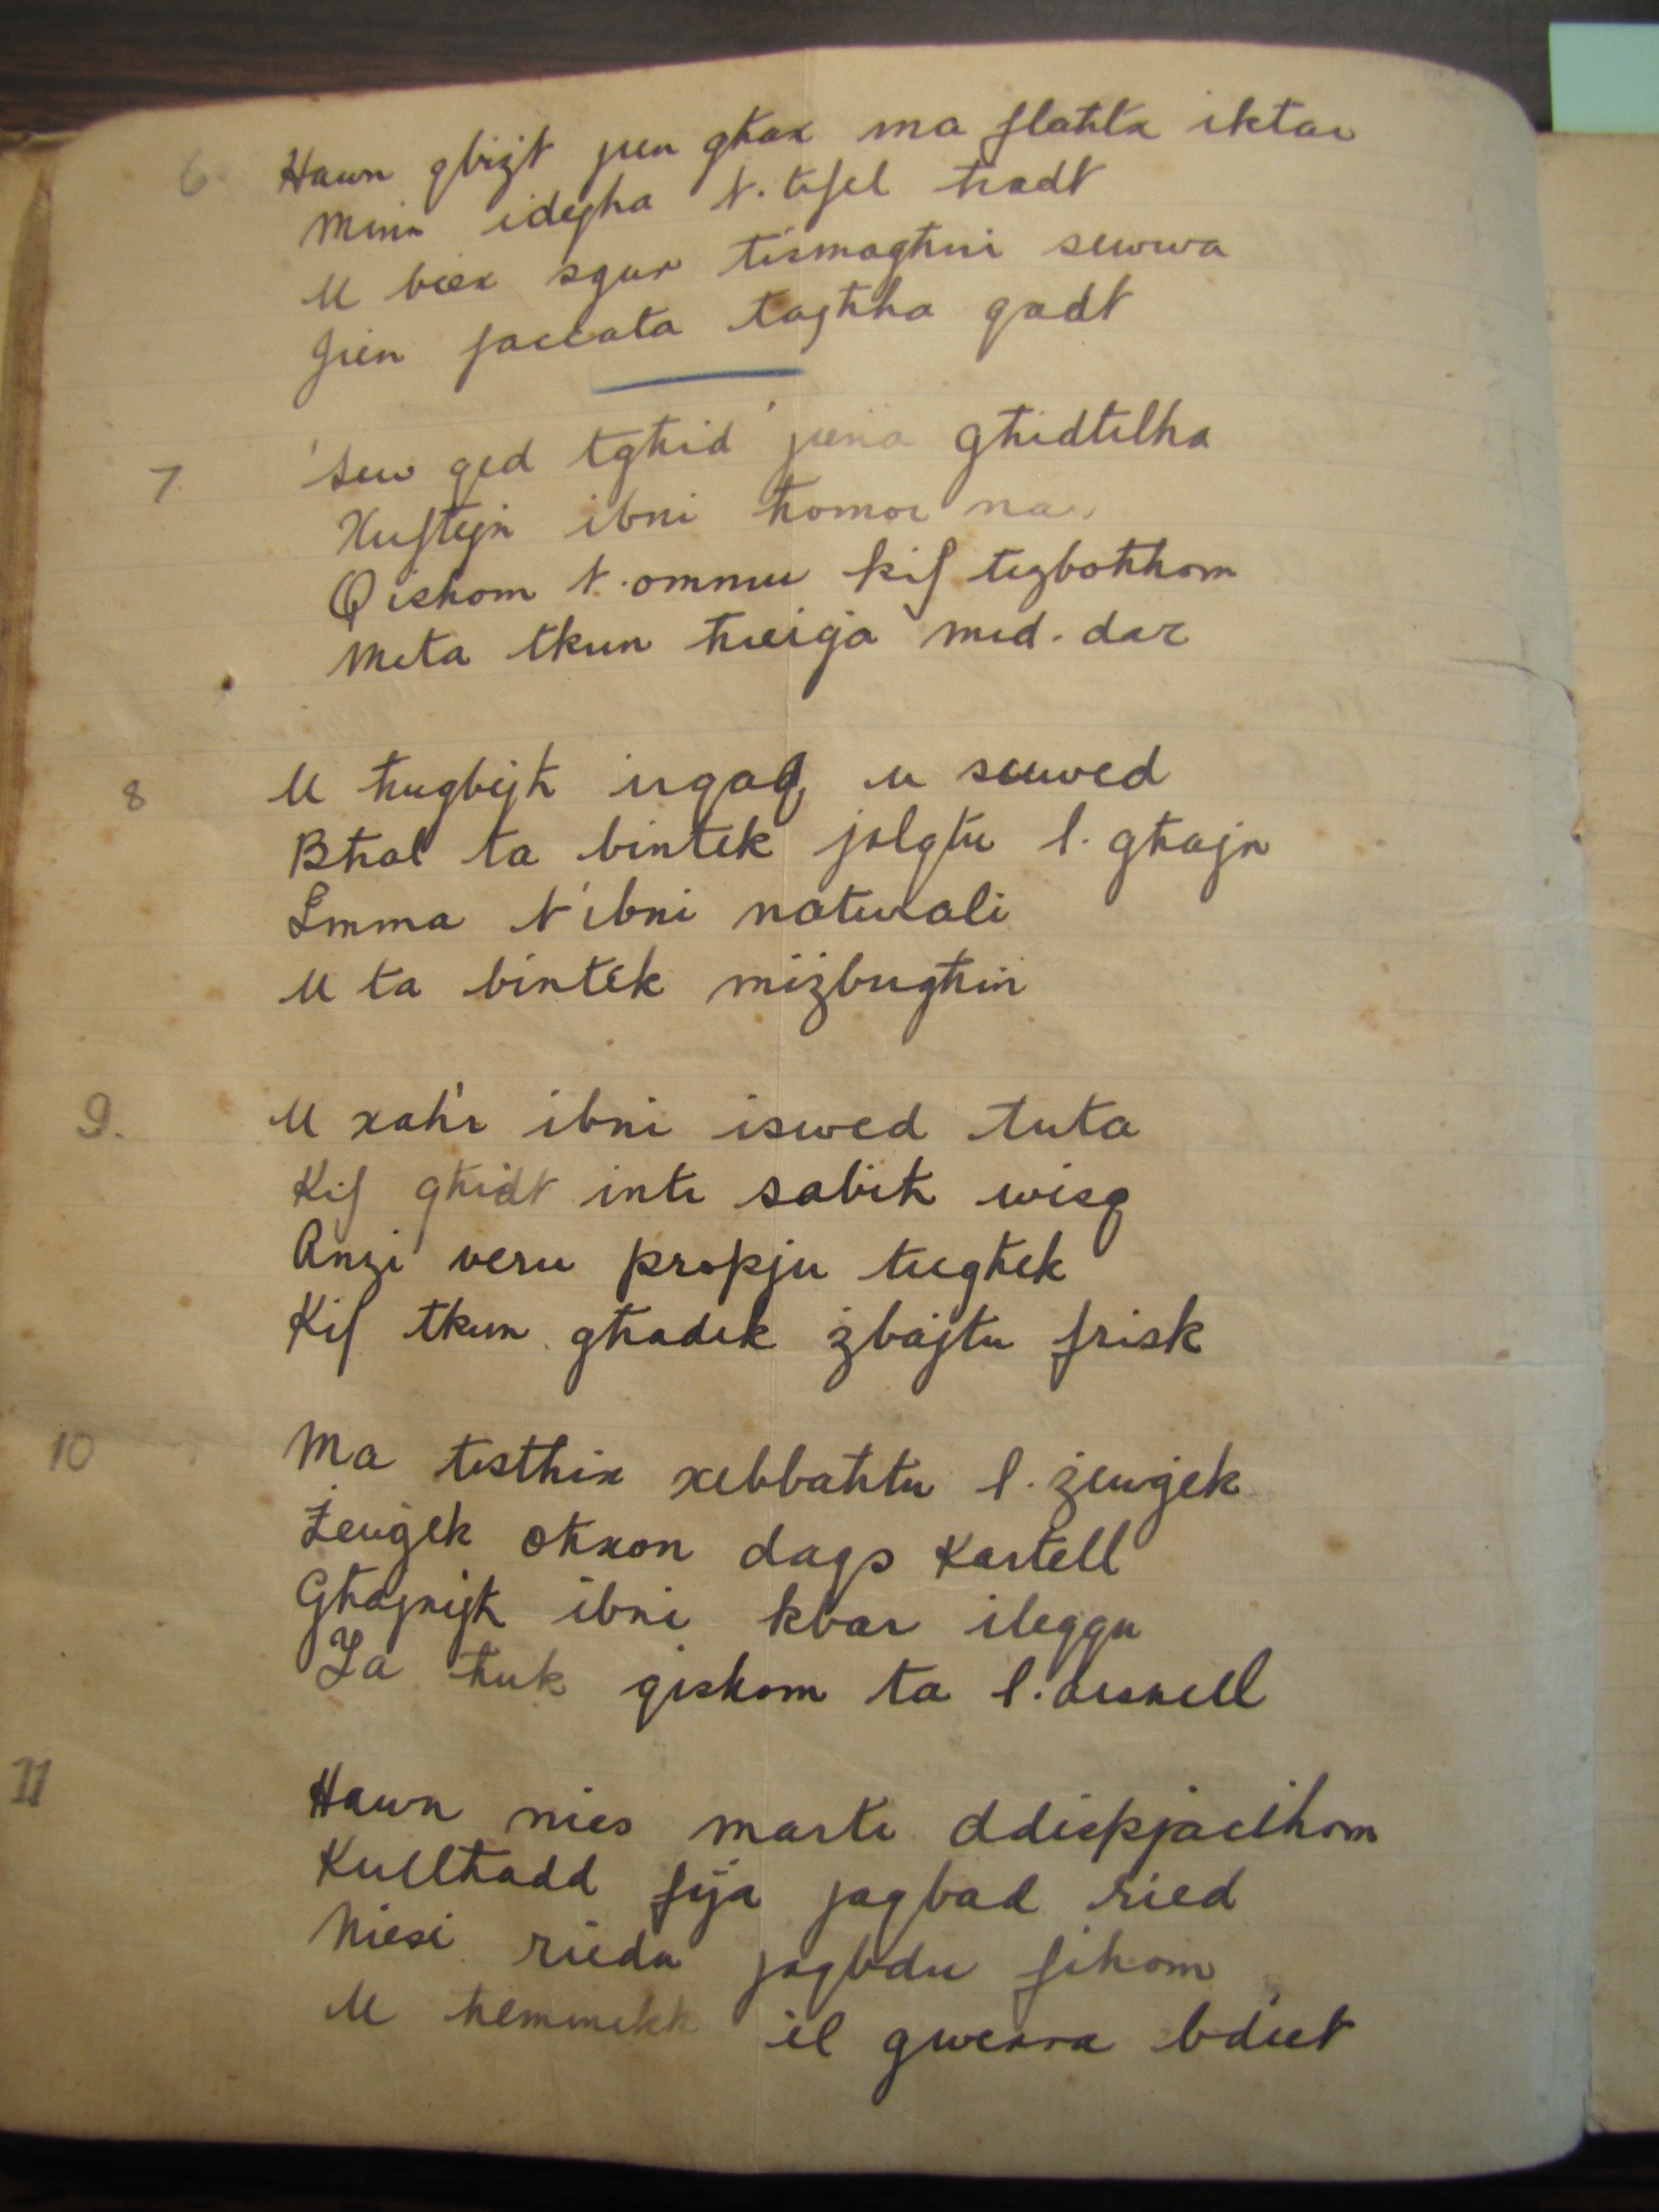 6. Hawn qbiżt jien għax ma flaħtx iktar
Minn idejha t.tifel ħadt
U biex sgur tismagħni sewwa
Jien faccata tagħha qadt
7. 'Sew qed tgħid' jiena għidtilha
Xuftejn ibni ħomor
Qishom t.ommu kif tiżbothhom
Meta tkun ħierġa mid-dar
8 U ħuġbejħ irqaq u suwed
Bħal ta bintek jolqtu l.għajn
Imma t'ibni naturali
U ta bintek miżbugħin
9. U xahr ibni iswed tuta
Kif għidt inti sabiħ wisq
Anzi veru propju tiegħek
Kif tkun għadek żbajtu frisk
10 Ma tistħix xebbaħtu l.żewġek
Żewġek oħxon daqs kastell
Għajnejħ ibni kbar ileqqu
Ta ħuk qishom ta l.
11 Hawn nies marti ddispjacihom
Kulħadd fija jaqbad ried
Niesi riedu jaqbdu fihom
U hemmekk il gwerra bdiet